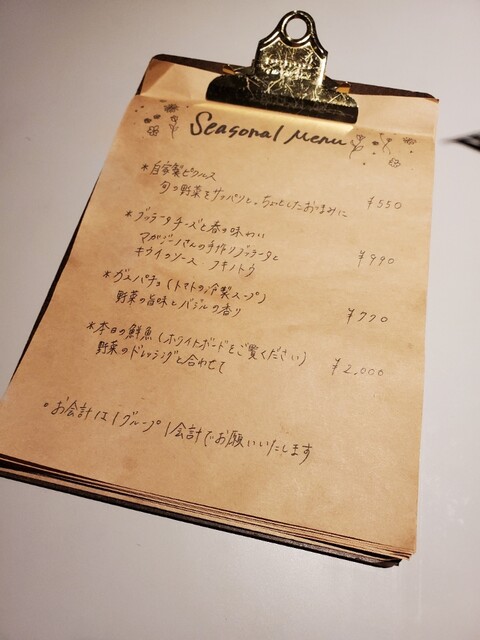 Seasonal Menu
*自家製ピクルス
旬の野菜をサッパリと。ちょっとしたおつまみに ¥550
*ブッラータチーズと春の味わい
マガジーノさんの手作りブッラータと
キウイのソース フキノトウ ¥990
*ガスパチョ(トマトの冷製スープ)
野菜の旨味とバジルの香り ¥770
*本日の鮮魚(ホワイトボードをご覧ください)
野菜のドレッシングと合わせて ¥2,000
。お会計は1グループ1会計でお願いいたします